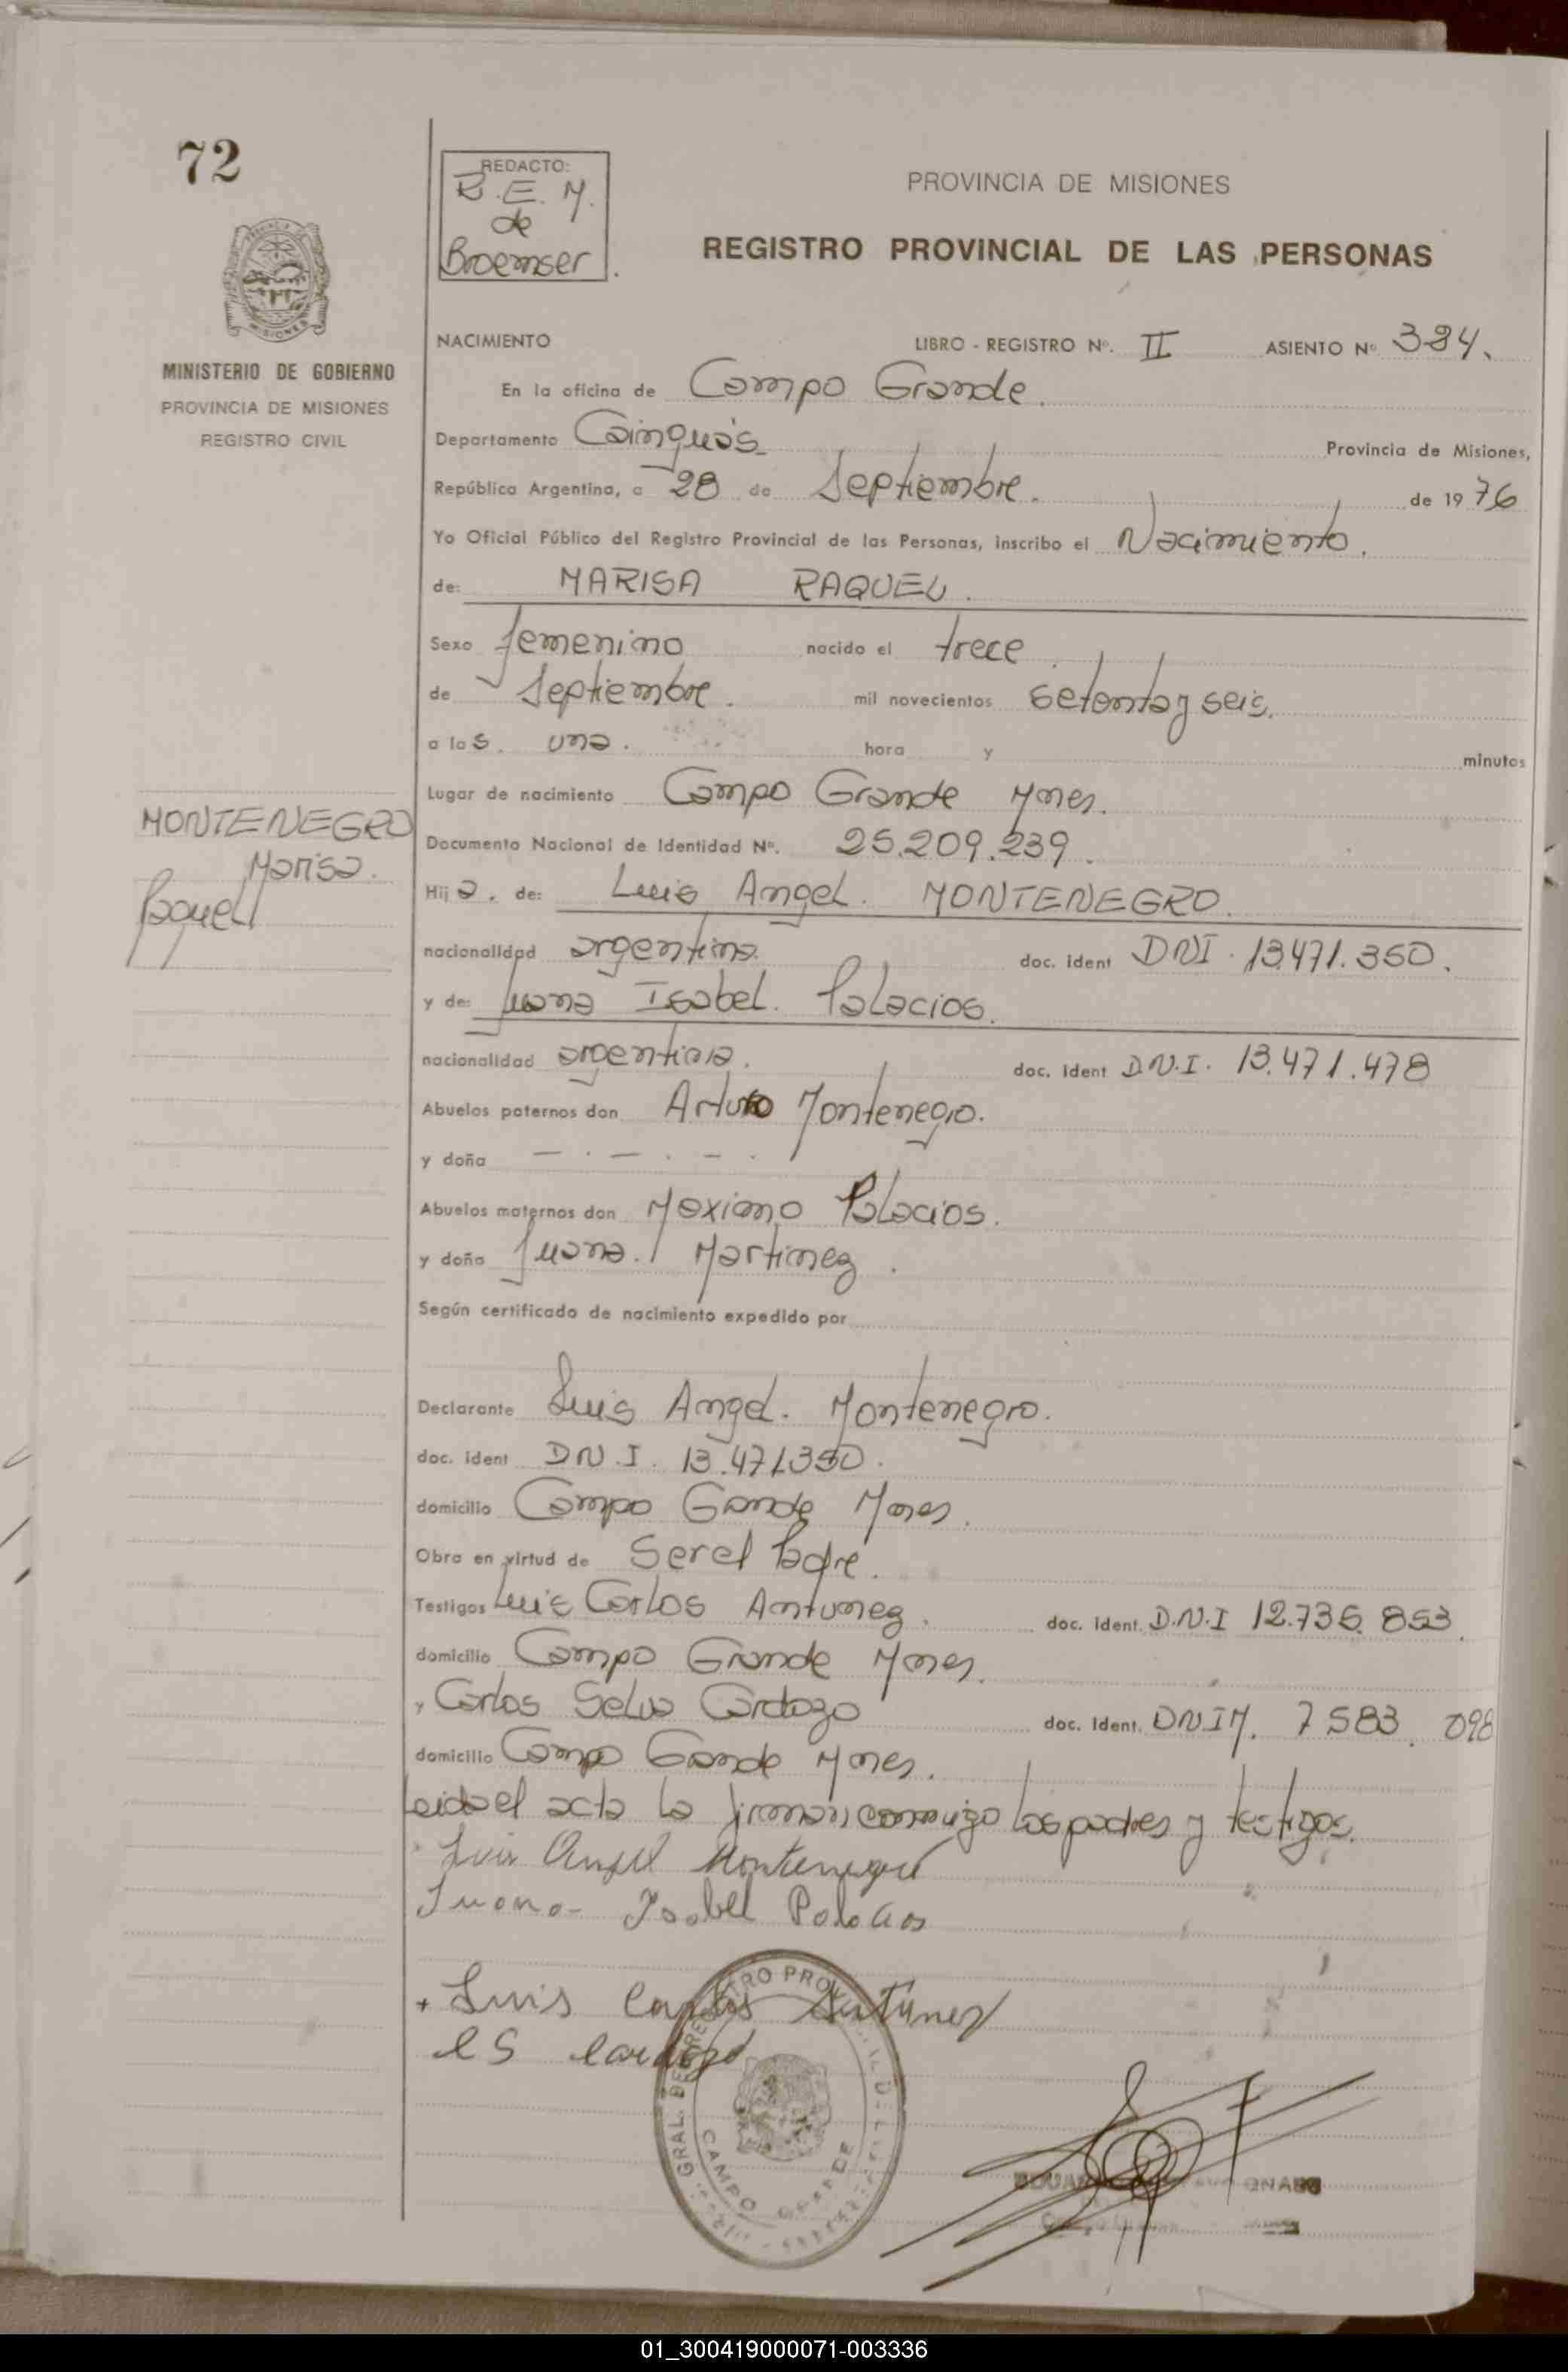 72
REDACTO:
B. E. M.
de
Broemser.
PROVINCIA DE MISIONES
REGISTRO PROVINCIAL DE LAS PERSONAS
MISIONES
MINISTERIO DE GOBIERNO
PROVINCIA DE MISIONES
REGISTRO CIVIL
NACIMIENTO LIBRO - REGISTRO Nº. II ASIENTO Nº 384.
En la oficina de Campo Grande.
Departamento Cainguás Provincia de Misiones,
República Argentina, a 28 de Septiembre. de 1976
Yo Oficial Público del Registro Provincial de las Personas, inscribo el Nacimiento.
de: MARISA RAQUEL.
Sexo femenino nacido el trece
de Septiembre. mil novecientos setenta y seis.
a las. una. hora y minutos
Lugar de nacimiento Campo Grande Mnes.
MONTENEGRO
Marisa.
Raquel
Documento Nacional de Identidad Nº. 25.209.239.
Hija. de: Luis Angel. MONTENEGRO.
nacionalidad argentina. doc. ident DNI. 13.471.350.
y de: Juana Isabel. Palacios.
nacionalidad argentina. doc. ident D.N.I. 13.471.478
Abuelos paternos don Arturo Montenegro.
y doña — . — . — .
Abuelos maternos don Maximo Palacios.
y doña Juana. Martinez.
Según certificado de nacimiento expedido por
Declarante Luis Angel. Montenegro.
doc. ident D.N.I. 13.471350.
domicilio Campo Grande Mnes.
Obra en virtud de Ser el Padre.
Testigos Luis Carlos Antunez. doc. ident. D.N.I 12.735.853.
domicilio Campo Grande Mnes.
y Carlos Selva Cardozo doc. ident. DNIM. 7583.098
domicilio Campo Grande Mnes.
Leida el acta la firman conmigo los padres y testigos.
Luis Angel Montenegro
Juana- Isabel Palacios
+ Luis Carlos Antunez
CS Cardozo
GRAL. DE REGISTRO PRO
CAMPO GRANDE
01_300419000071-003336